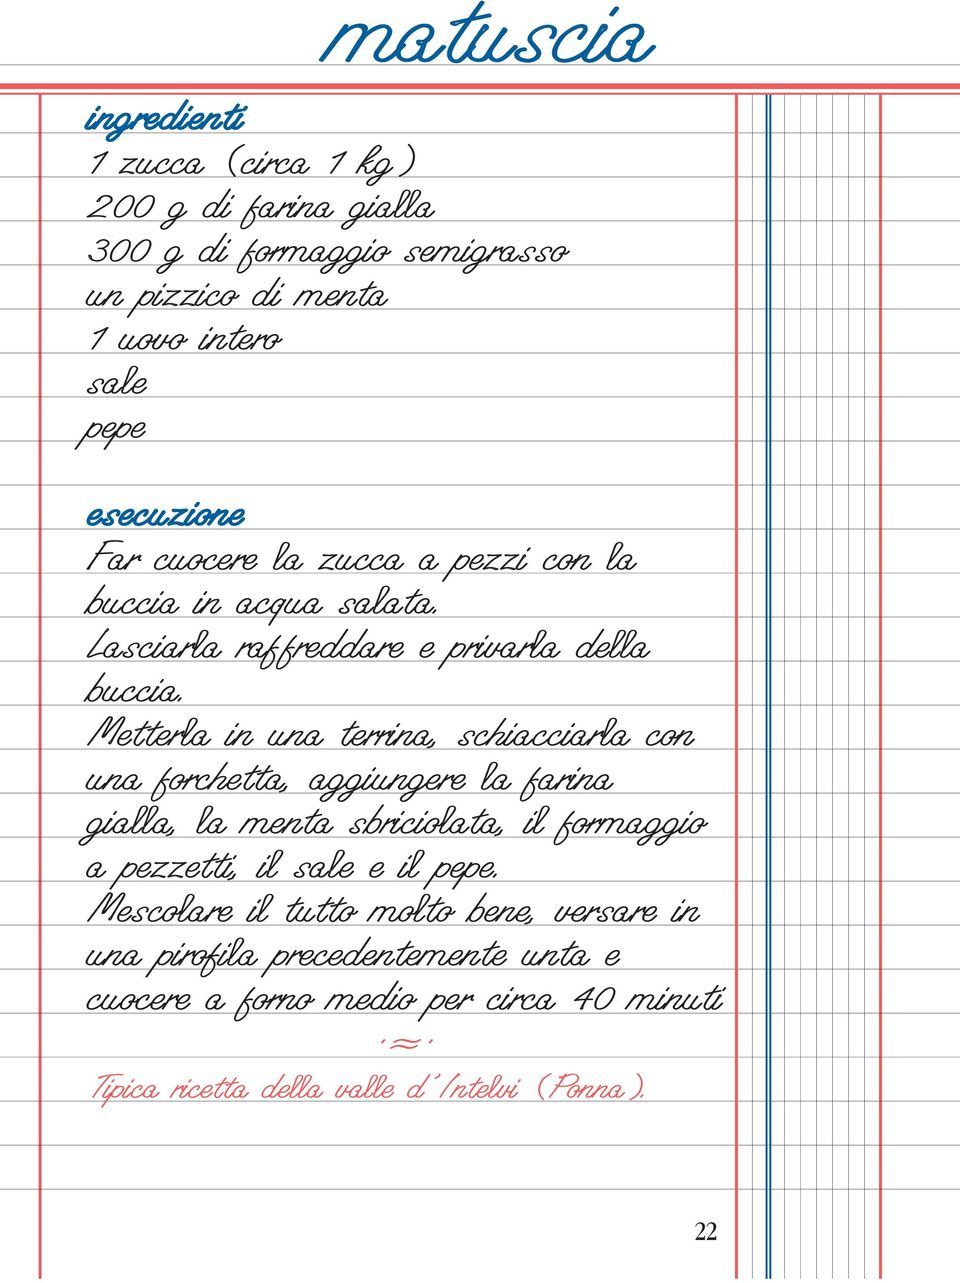 matuscia
ingredienti
1 zucca (circa 1 kg)
200 g di farina gialla
300 g di formaggio semigrasso
un pizzico di menta
1 uovo intero
sale
pepe
esecuzione
Far cuocere la zucca a pezzi con la
buccia in acqua salata.
Lasciarla raffreddare e privarla della
buccia.
Metterla in una terrina, schiacciarla con
una forchetta, aggiungere la farina
gialla, la menta sbriciolata, il formaggio
a pezzetti, il sale e il pepe.
Mescolare il tutto molto bene, versare in
una pirofila precedentemente unta e
cuocere a forno medio per circa 40 minuti
·≈·
Tipica ricetta della valle d'Intelvi (Ponna).
22